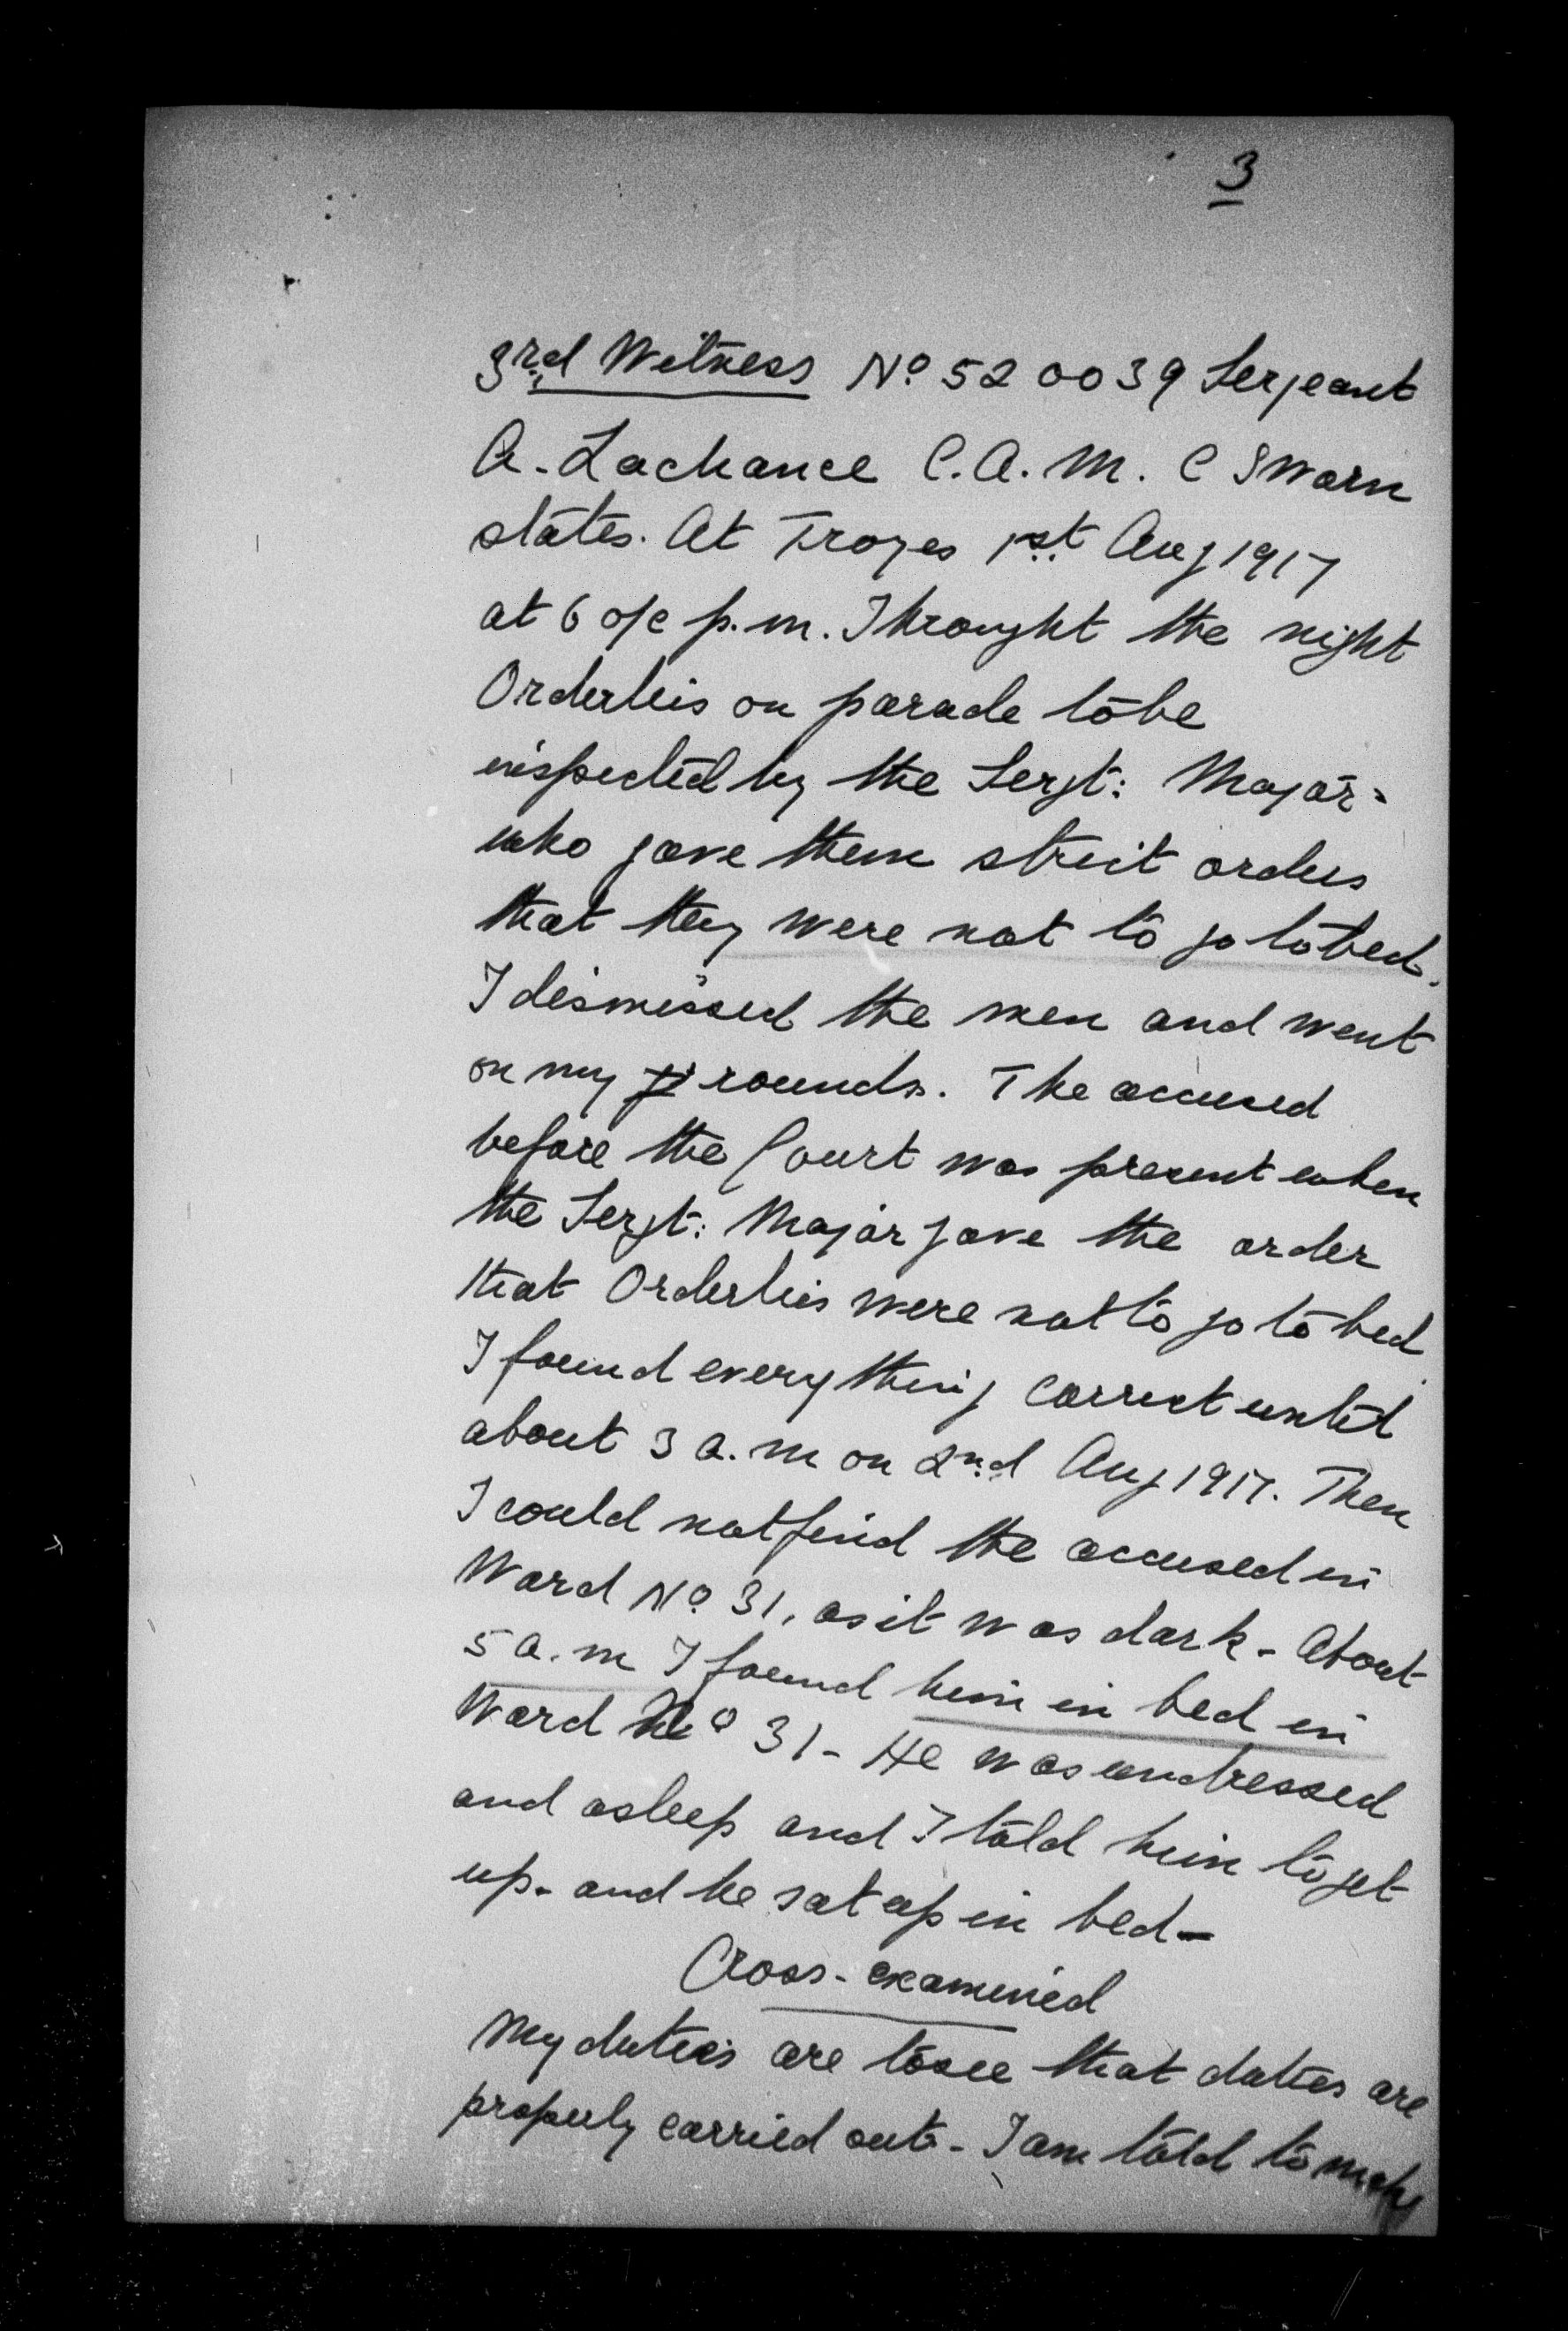 3
3rd Witness No 520039 Serjeant
A. Lachance C.A.M.C Sworn
states. At Troyes 1st Aug 1917
at 6 o/c p.m. I brought the night
Orderlies on parade to be
inspected by the Serjt: Major -
who gave them strict orders
that they were not to go to bed.
I dismissed the men and went
on my rounds. The accused
before the Court was present when
the Serjt: Major gave the order
that Orderlies were not to go to bed
I found everything correct until
about 3 a.m on 2nd Aug 1917. Then
I could not find the accused in
Ward No 31, as it was dark - About
5 a.m I found him in bed in
Ward No 31 - He was undressed
and asleep and I told him to get
up - and he sat up in bed -
Cross-examined
My duties are to see that duties are
properly carried out - I am told to make